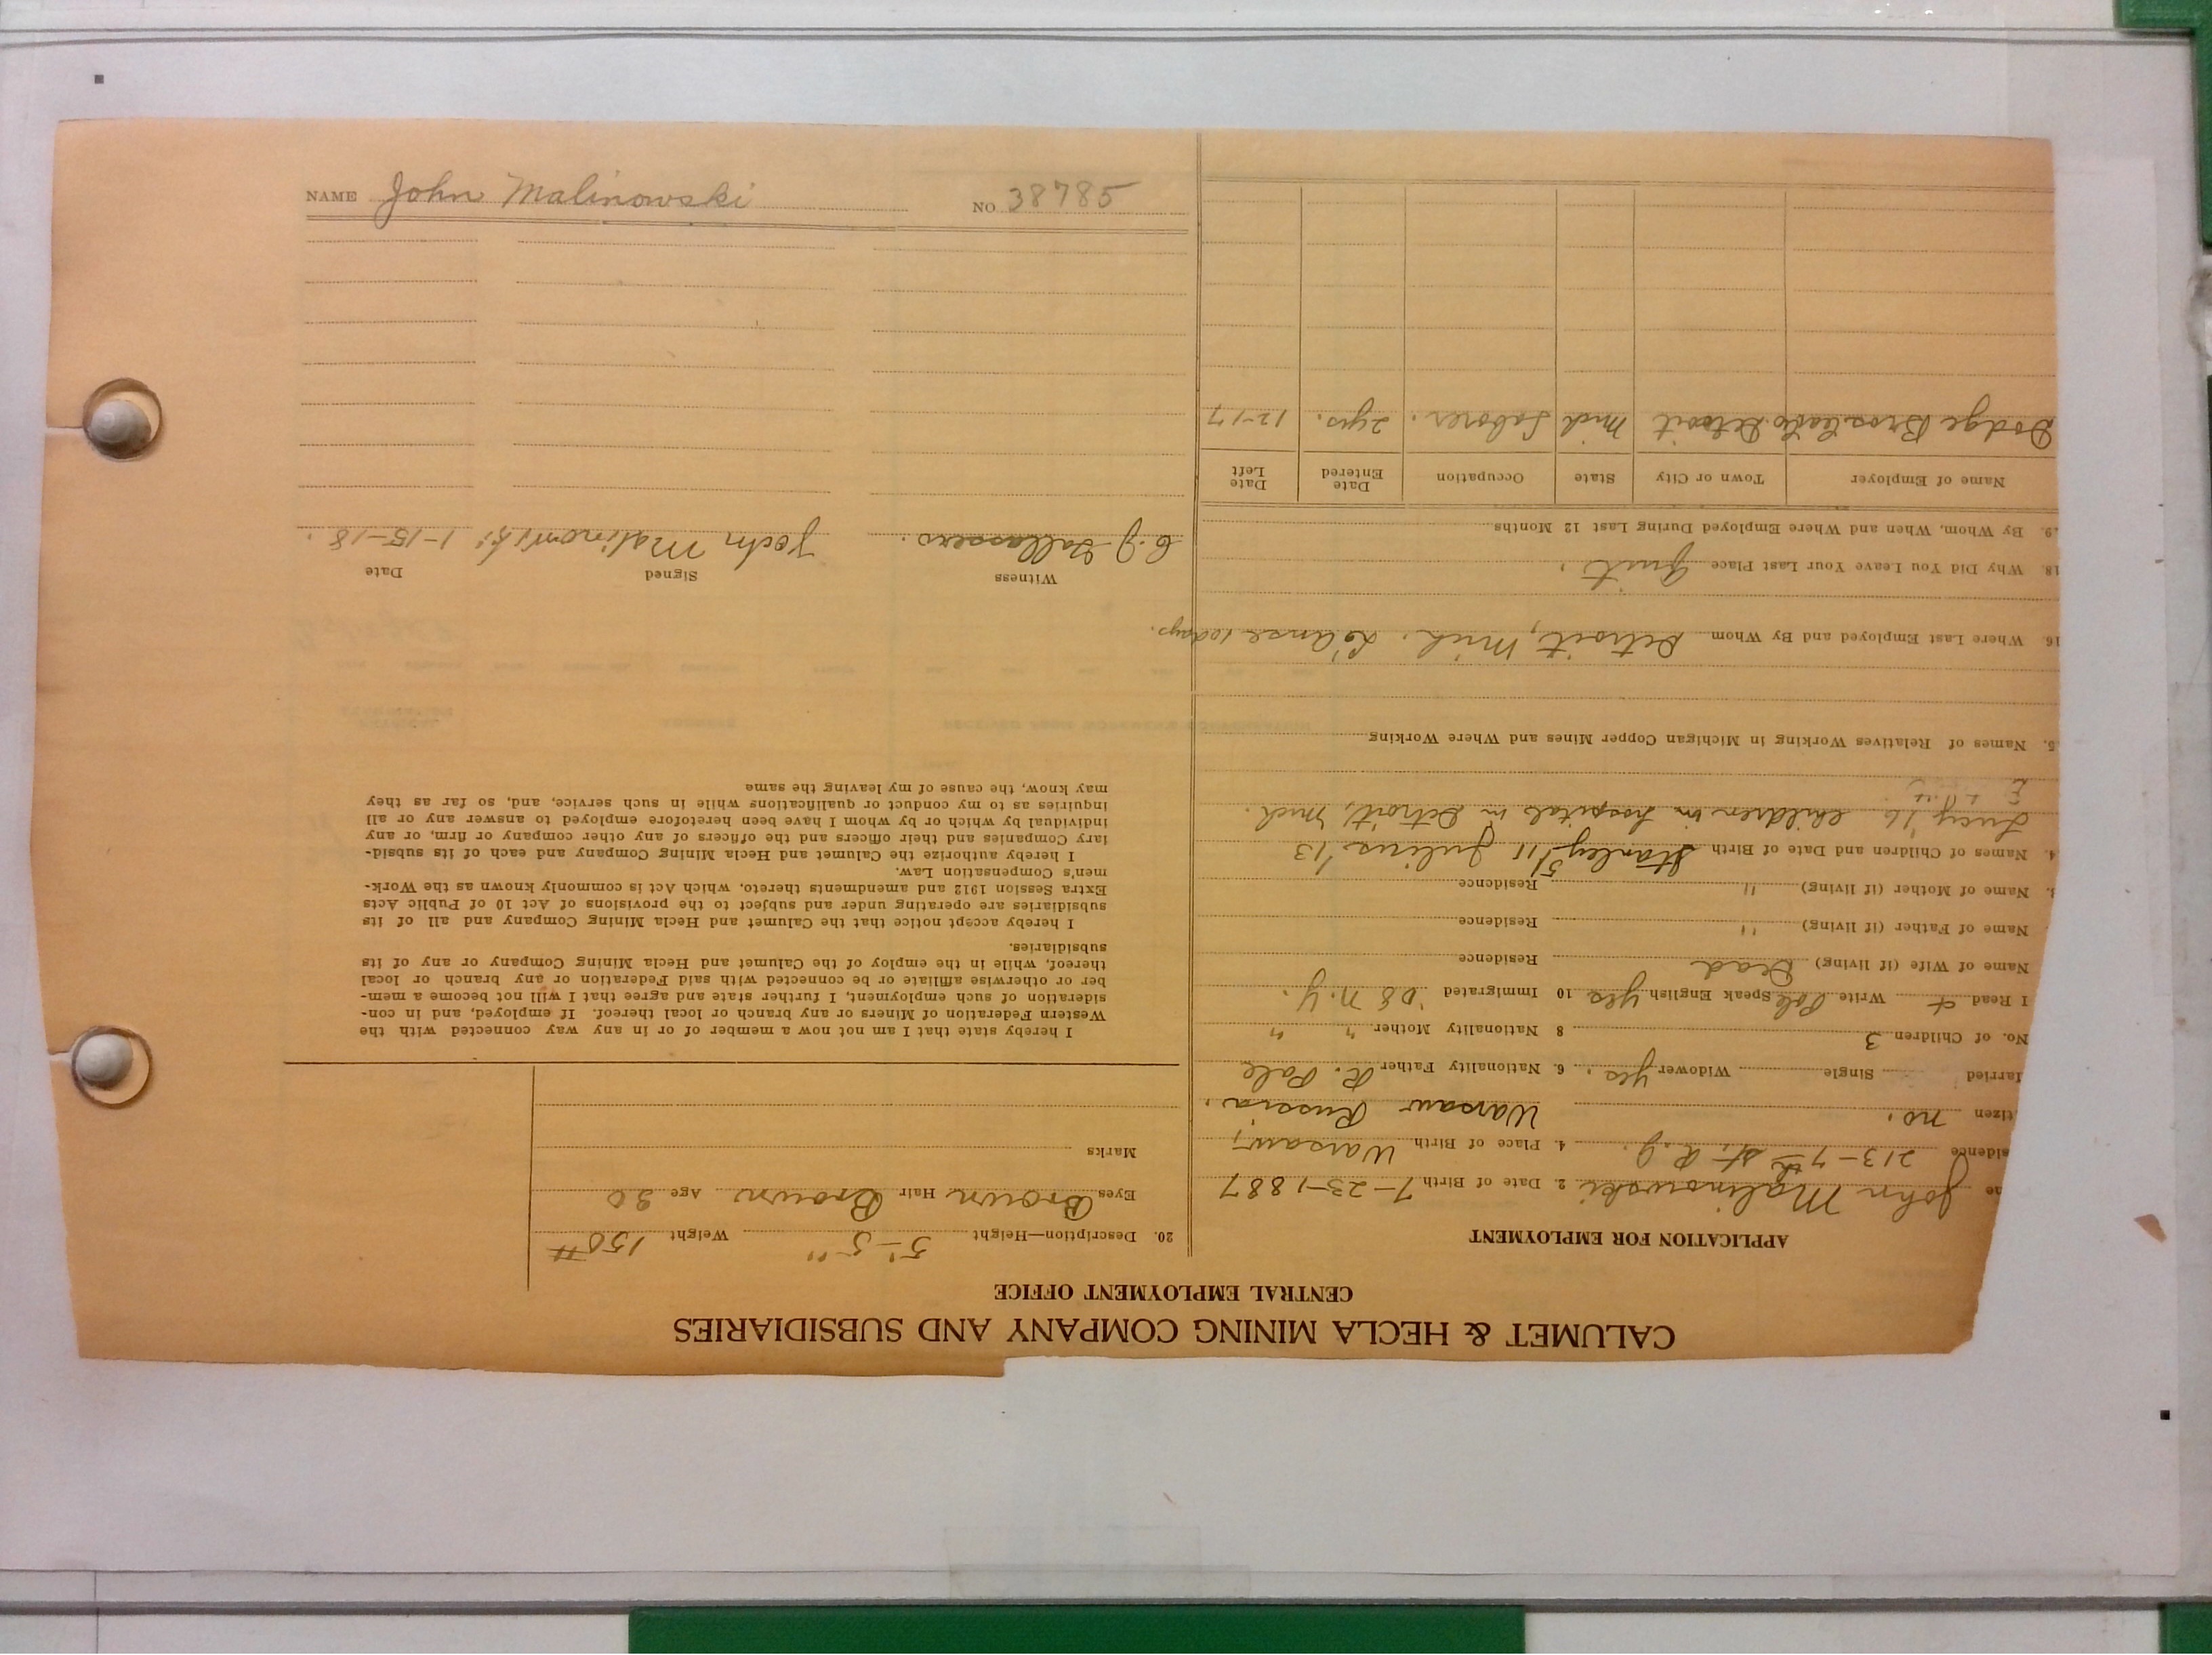 NAME John Malinowski NO 38785
CALUMET & HECLA MINING COMPANY AND SUBSIDIARIES
CENTRAL EMPLOYMENT OFFICE
APPLICATION FOR EMPLOYMENT
me John Malinowski 2. Date of Birth 7-23-1887
sidence 213-7th St. R.J. 4. Place of Birth Warsaw,
tizen no. Warsaw Russia.
larried Single Widower yes. 6. Nationality Father R. Pole
No. of Children 3 8 Nationality Mother " "
I Read + Write Pole Speak English yes 10 Immigrated '08 N.Y.
Name of Wife (if living) Dead Residence
Name of Father (if living) " Residence
3. Name of Mother (if living) " Residence
4. Names of Children and Date of Birth Stanley 5/11 Julius /13
Lucy '16 children in hospital in Detroit, Mich.
5. Names of Relatives Working in Michigan Copper Mines and Where Working
16. Where Last Employed and By Whom Detroit, Mich. L'Anse 10 days.
18. Why Did You Leave Your Last Place Quit.
19. By Whom, When and Where Employed During Last 12 Months
Name of Employer Town or City State Occupation Date Entered Date Left
Dodge Bros. Detroit Mich Laborer. 2 yrs. 12-17
20. Description—Height 5'-5" Weight 150 #
Eyes Brown Hair Brown Age 30
Marks
I hereby state that I am not now a member of or in any way connected with the
Western Federation of Miners or any branch or local thereof. If employed, and in con-
sideration of such employment, I further state and agree that I will not become a mem-
ber or otherwise affiliate or be connected with said Federation or any branch or local
thereof, while in the employ of the Calumet and Hecla Mining Company or any of its
subsidiaries.
I hereby accept notice that the Calumet and Hecla Mining Company and all of its
subsidiaries are operating under and subject to the provisions of Act 10 of Public Acts
Extra Session 1912 and amendments thereto, which Act is commonly known as the Work-
men's Compensation Law.
I hereby authorize the Calumet and Hecla Mining Company and each of its subsid-
iary Companies and their officers and the officers of any other company or firm, or any
individual by which or by whom I have been heretofore employed to answer any or all
inquiries as to my conduct or qualifications while in such service, and, so far as they
may know, the cause of my leaving the same
Witness Signed Date
C.J. John Malinowski 1-15-18.